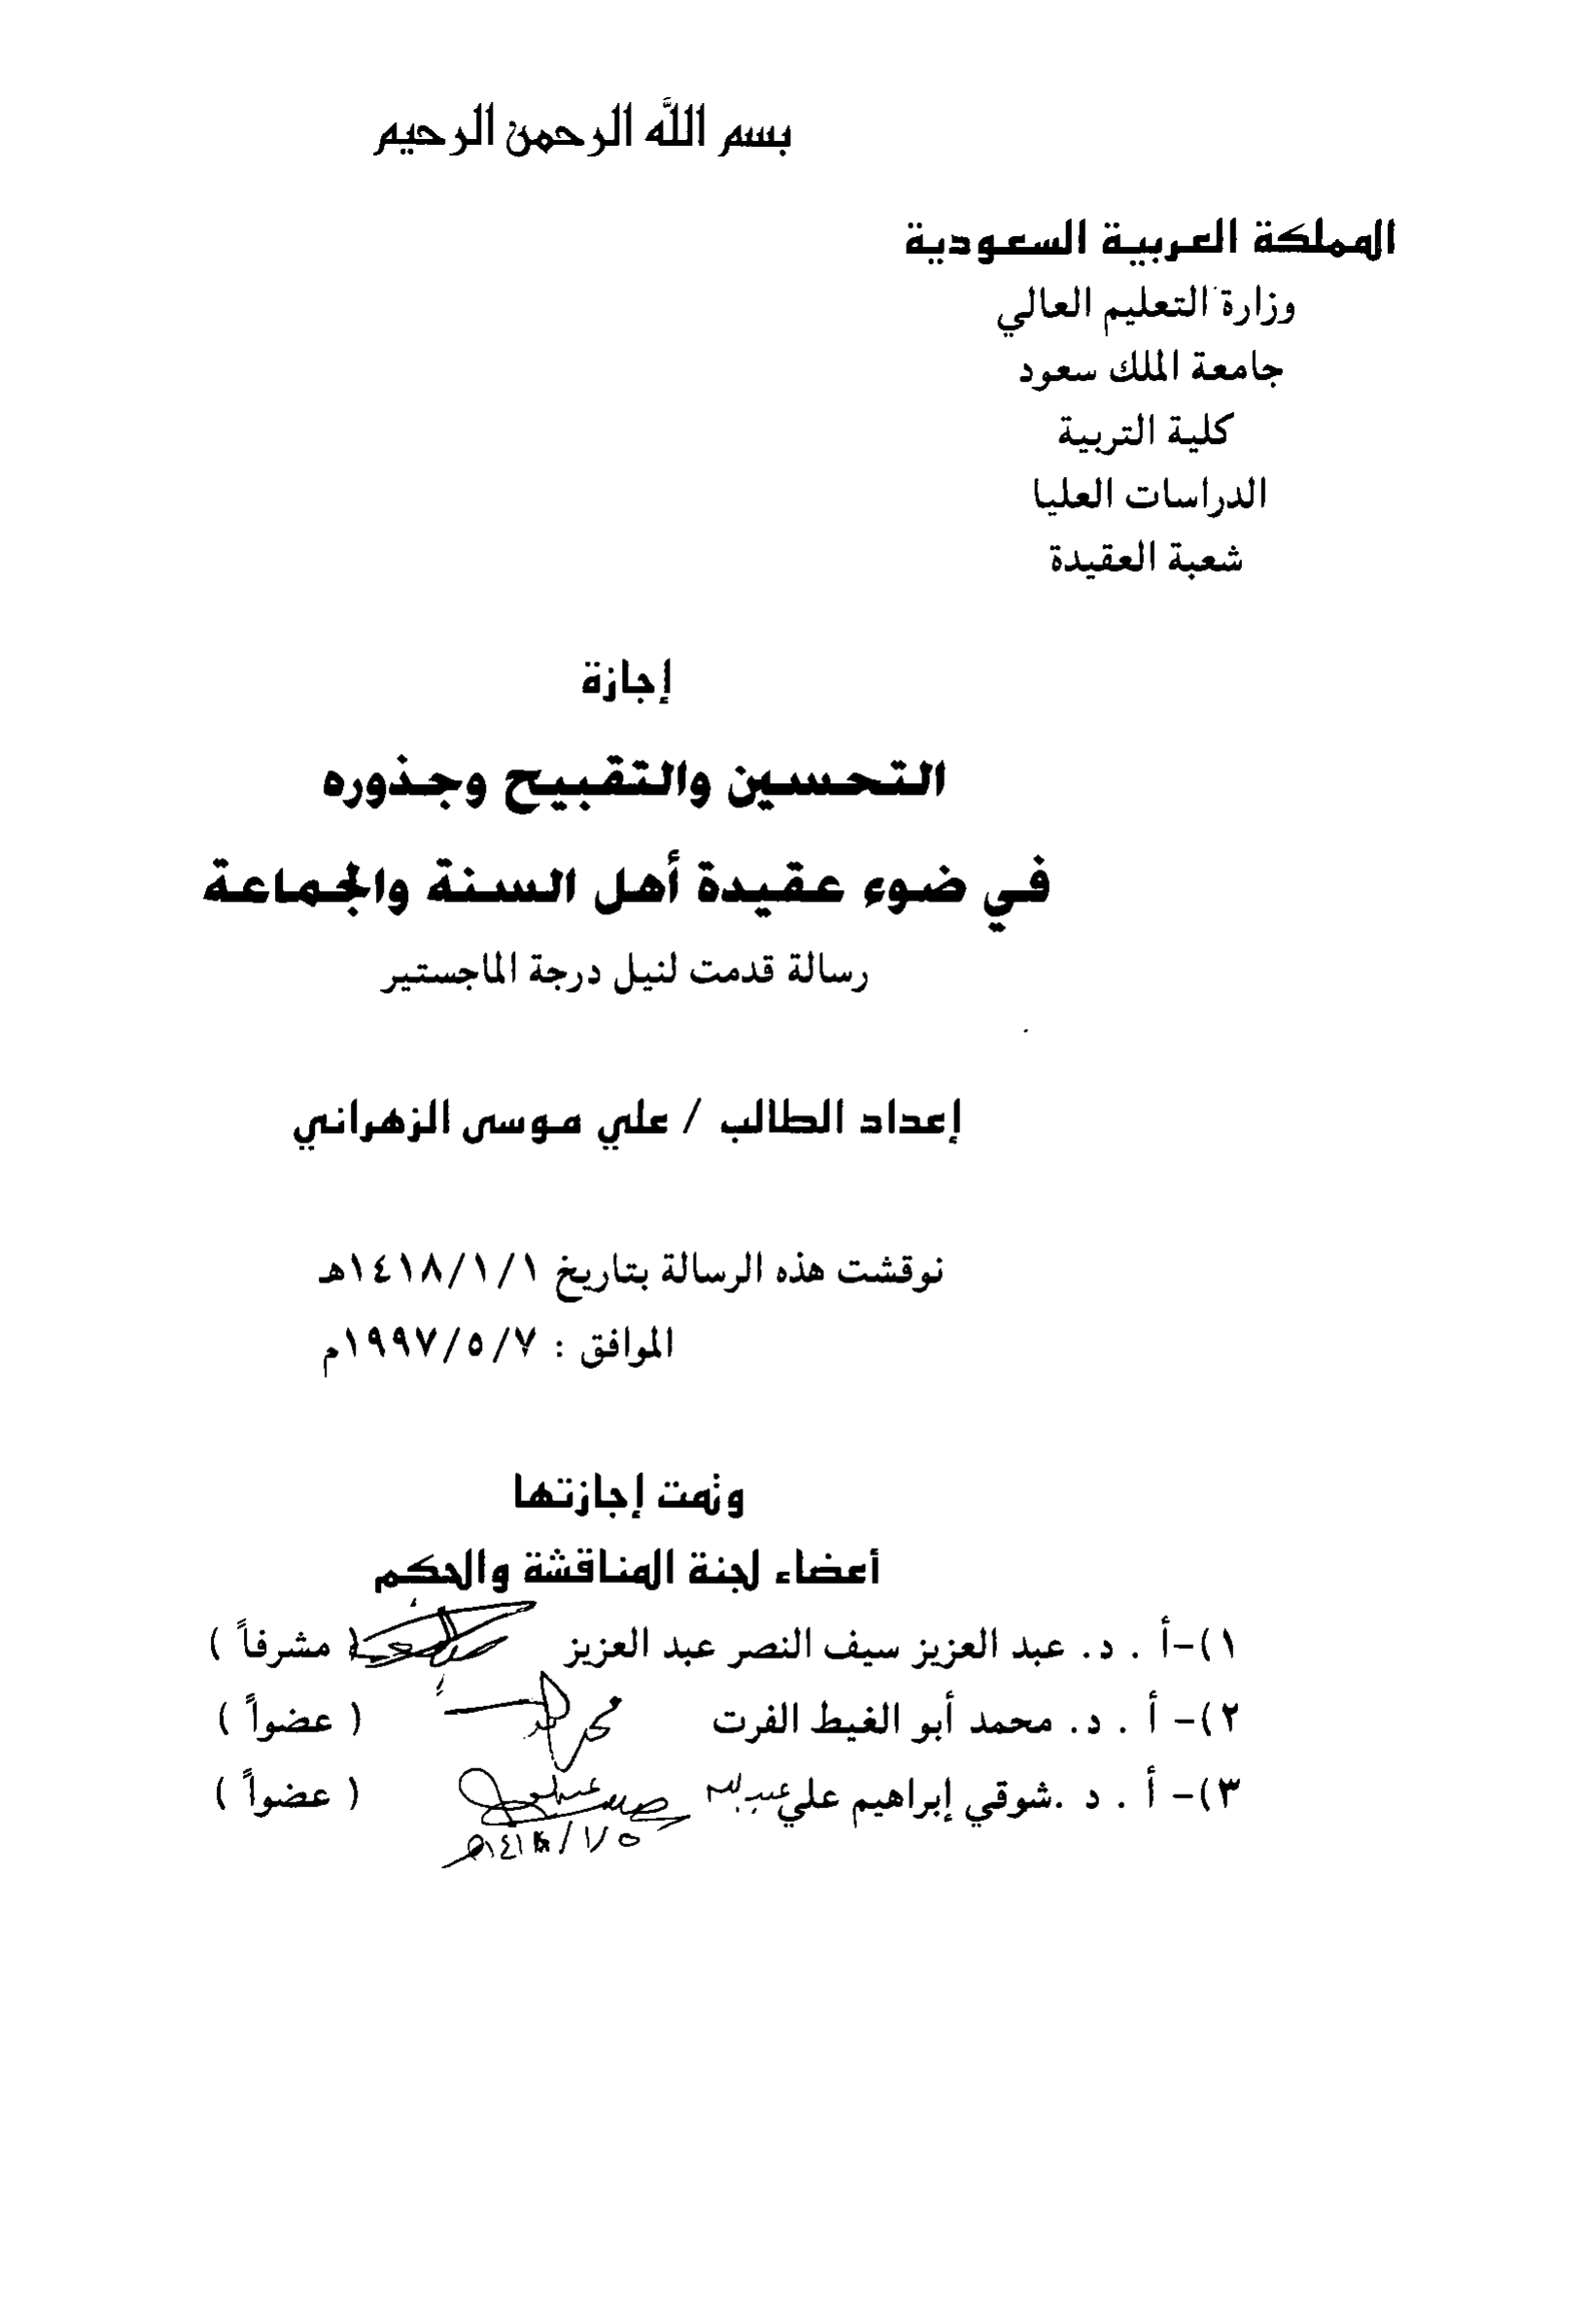 بسم الله الرحمن الرحيم
المملكة العربية السعودية
وزارة التعليم العالي
جامعة الملك سعود
كلية التربية
الدراسات العليا
شعبة العقيدة
إجازة
التحسين والتقبيح وجذوره
في ضوء عقيدة أهل السنة والجماعة
رسالة قدمت لنيل درجة الماجستير
إعداد الطالب / علي موسى الزهراني
نوقشت هذه الرسالة بتاريخ ١/١/١٤١٨هـ
الموافق : ٧/٥/١٩٩٧م
وتمت إجازتها
أعضاء لجنة المناقشة والحكم
١)-أ . د. عبد العزيز سيف النصر عبد العزيز ( مشرفاً )
٢)- أ . د. محمد أبو الغيط الفرت ( عضواً )
٣)- أ . د .شوقي إبراهيم علي عبد الله ( عضواً )